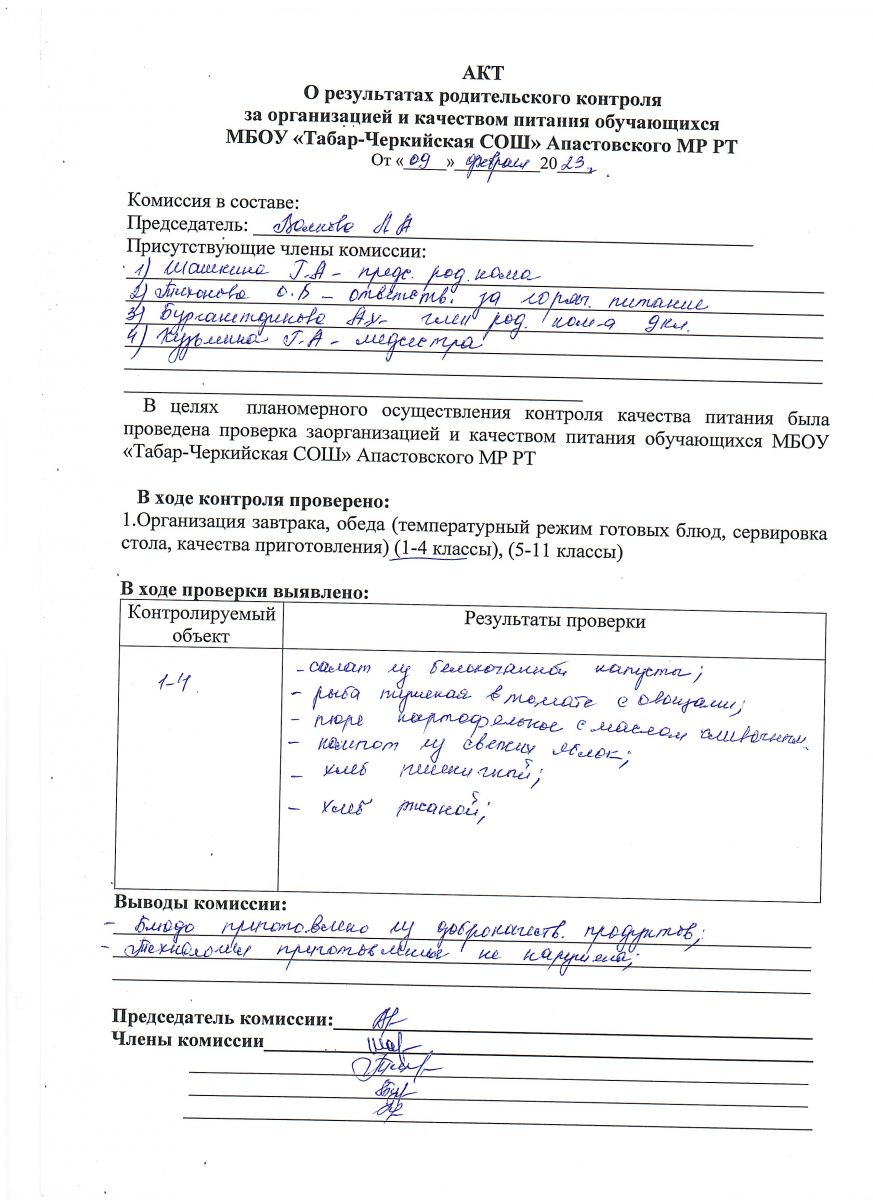 АКТ
О результатах родительского контроля
за организацией и качеством питания обучающихся
МБОУ «Табар-Черкийская СОШ» Апастовского МР РТ
От «09» февраля 2023г.
Комиссия в составе:
Председатель: Волкова Л А
Присутствующие члены комиссии:
1) Шашкина Г.А - предс. род.кома
2) Тихонова О.В - ответств. за горяч. питание
3) Бурганетдинова А.Х- член род. ком-а 9кл.
4) Кузьмина Г.А - медсестра
В целях планомерного осуществления контроля качества питания была
проведена проверка заорганизацией и качеством питания обучающихся МБОУ
«Табар-Черкийская СОШ» Апастовского МР РТ
В ходе контроля проверено:
1.Организация завтрака, обеда (температурный режим готовых блюд, сервировка
стола, качества приготовления) (1-4 классы), (5-11 классы)
В ходе проверки выявлено:
Контролируемый объект
Результаты проверки
1-4
- салат из белокочанной капусты;
- рыба тушеная в томате с овощами;
- пюре картофельное с маслом сливочным.
- компот из свежих яблок;
- хлеб пшеничной;
- хлеб ржаной;
Выводы комиссии:
- Блюдо приготовлено из доброкачеств. продуктов;
- Технология приготовления не нарушена;
Председатель комиссии:
Члены комиссии